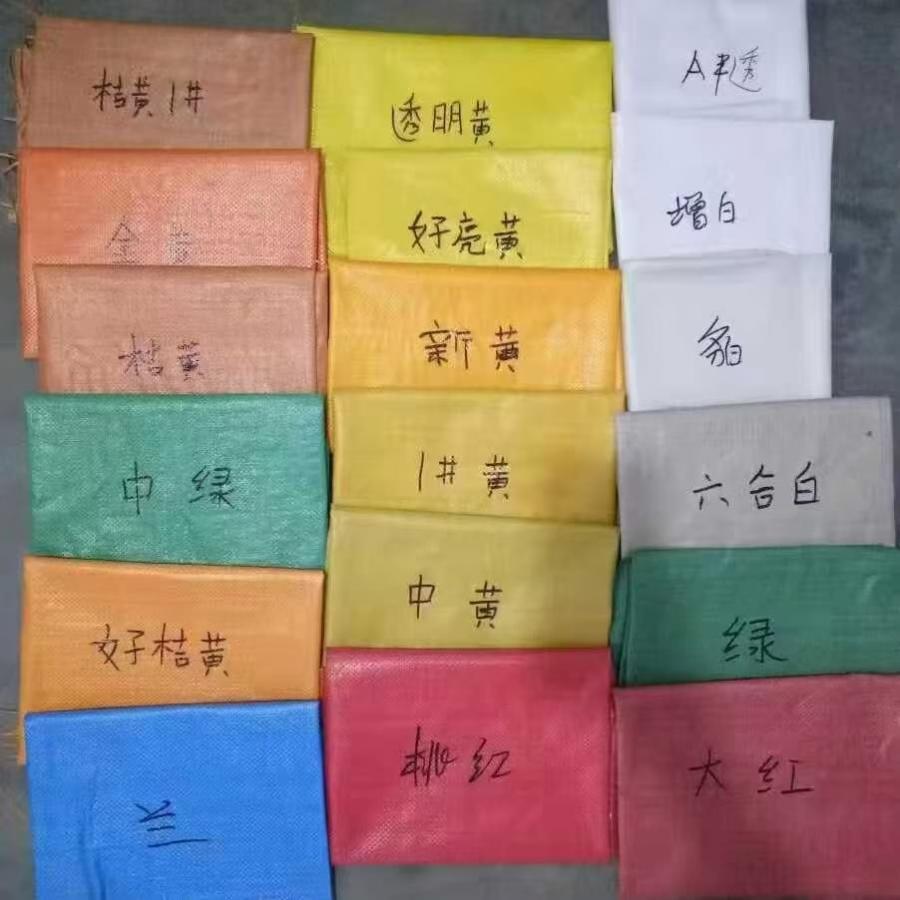 桔黄1#
全黄
桔黄
中绿
好桔黄
兰
透明黄
好亮黄
新黄
1#黄
中黄
桃红
A半透
增白
六合白
绿
大红